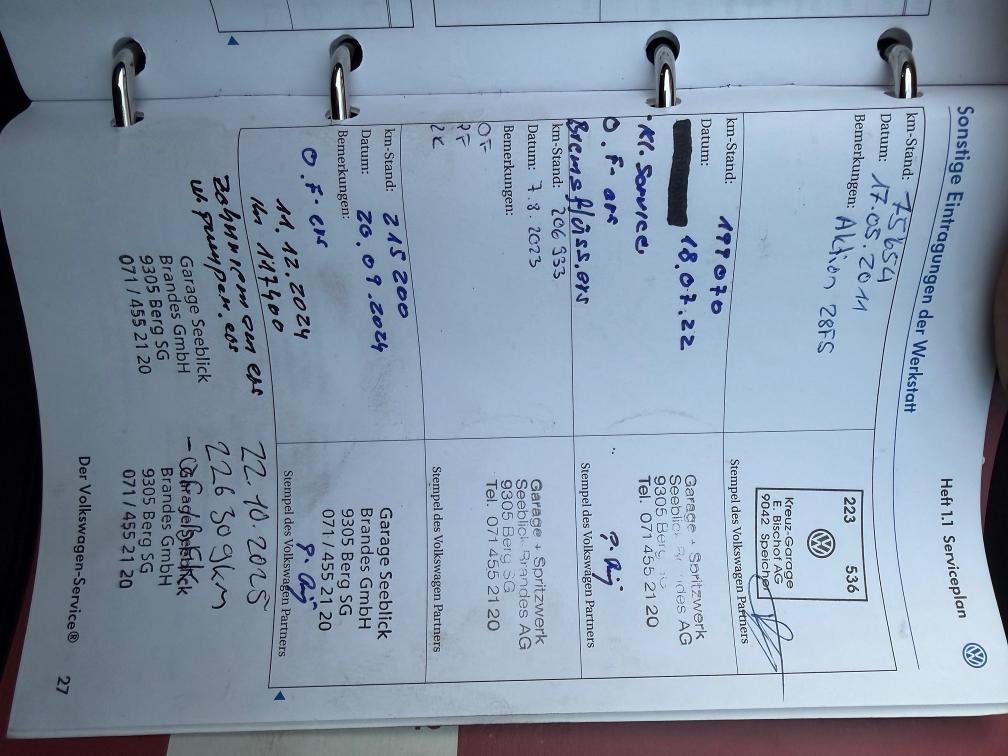 Heft 1.1 Serviceplan
Sonstige Eintragungen der Werkstatt
km-Stand: 75654
Datum: 17.05.2011
Bemerkungen: Aktion 28F5
223 536
Kreuz-Garage
E. Bischof AG
9042 Speicher
Stempel des Volkswagen Partners
km-Stand: 199070
Datum: 18.07.22
Kl. Service
O.F- ers
Bremsflüss.ers
Garage + Spritzwerk
Seeblick Brandes AG
9305 Berg SG
Tel. 071 455 21 20
Stempel des Volkswagen Partners
km-Stand: 206 933
Datum: 7.8.2023
Bemerkungen:
OF
PF
ZK
Garage + Spritzwerk
Seeblick Brandes AG
9305 Berg SG
Tel. 071 455 21 20
Stempel des Volkswagen Partners
km-Stand: 215 200
Datum: 26.09.2024
Bemerkungen:
O.F- ers
Garage Seeblick
Brandes GmbH
9305 Berg SG
071 / 455 21 20
Stempel des Volkswagen Partners
11.12.2024
Km 117400
Zahnriemen ers
w.pumpen.ers
Garage Seeblick
Brandes GmbH
9305 Berg SG
071 / 455 21 20
22.10.2025
226 309km
Garage Seeblick
Brandes GmbH
9305 Berg SG
071 / 455 21 20
Der Volkswagen-Service® 27